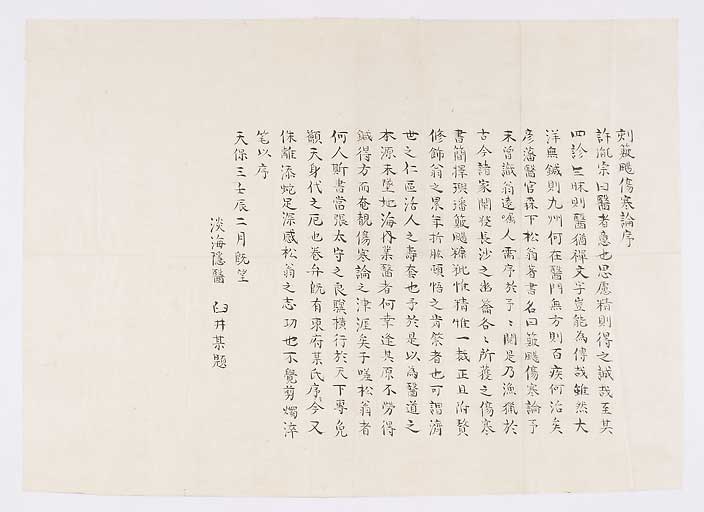 刻簸颺傷寒論序
許胤宗曰醫者意也思慮精則得之誠哉至其
四診三昧則醫猶禪文字豈能為傳哉雖然大
洋無鍼則九州何在醫門無方則百疾何治矣
彥藩醫官森下松翁著書名曰簸颺傷寒論予
未曾識翁遠囑人需序於予〻閱是乃漁獵於
古今諸家閱發長沙之出各〻所獲之傷寒
書簡擇璵璠簸颺糠秕惟精惟一裁正且附贅
修飾翁之累年折肱頭悟之肯綮者也可謂濟
世之仁區活人之壽套也予於是以為醫道之
本源未墜地海內業醫者何幸逢其原不勞得
鍼得方而奄觀傷寒論之津涯矣予嗟松翁者
何人斯書當張太守之良驥橫行於天下專免
顴天身代之厄也卷弁既有東府某氏序今又
侏離添蛇足深感松翁之志功也不覺剪燭淬
筆以序
天保三壬辰二月既望
淡海隱醫 臼井某題